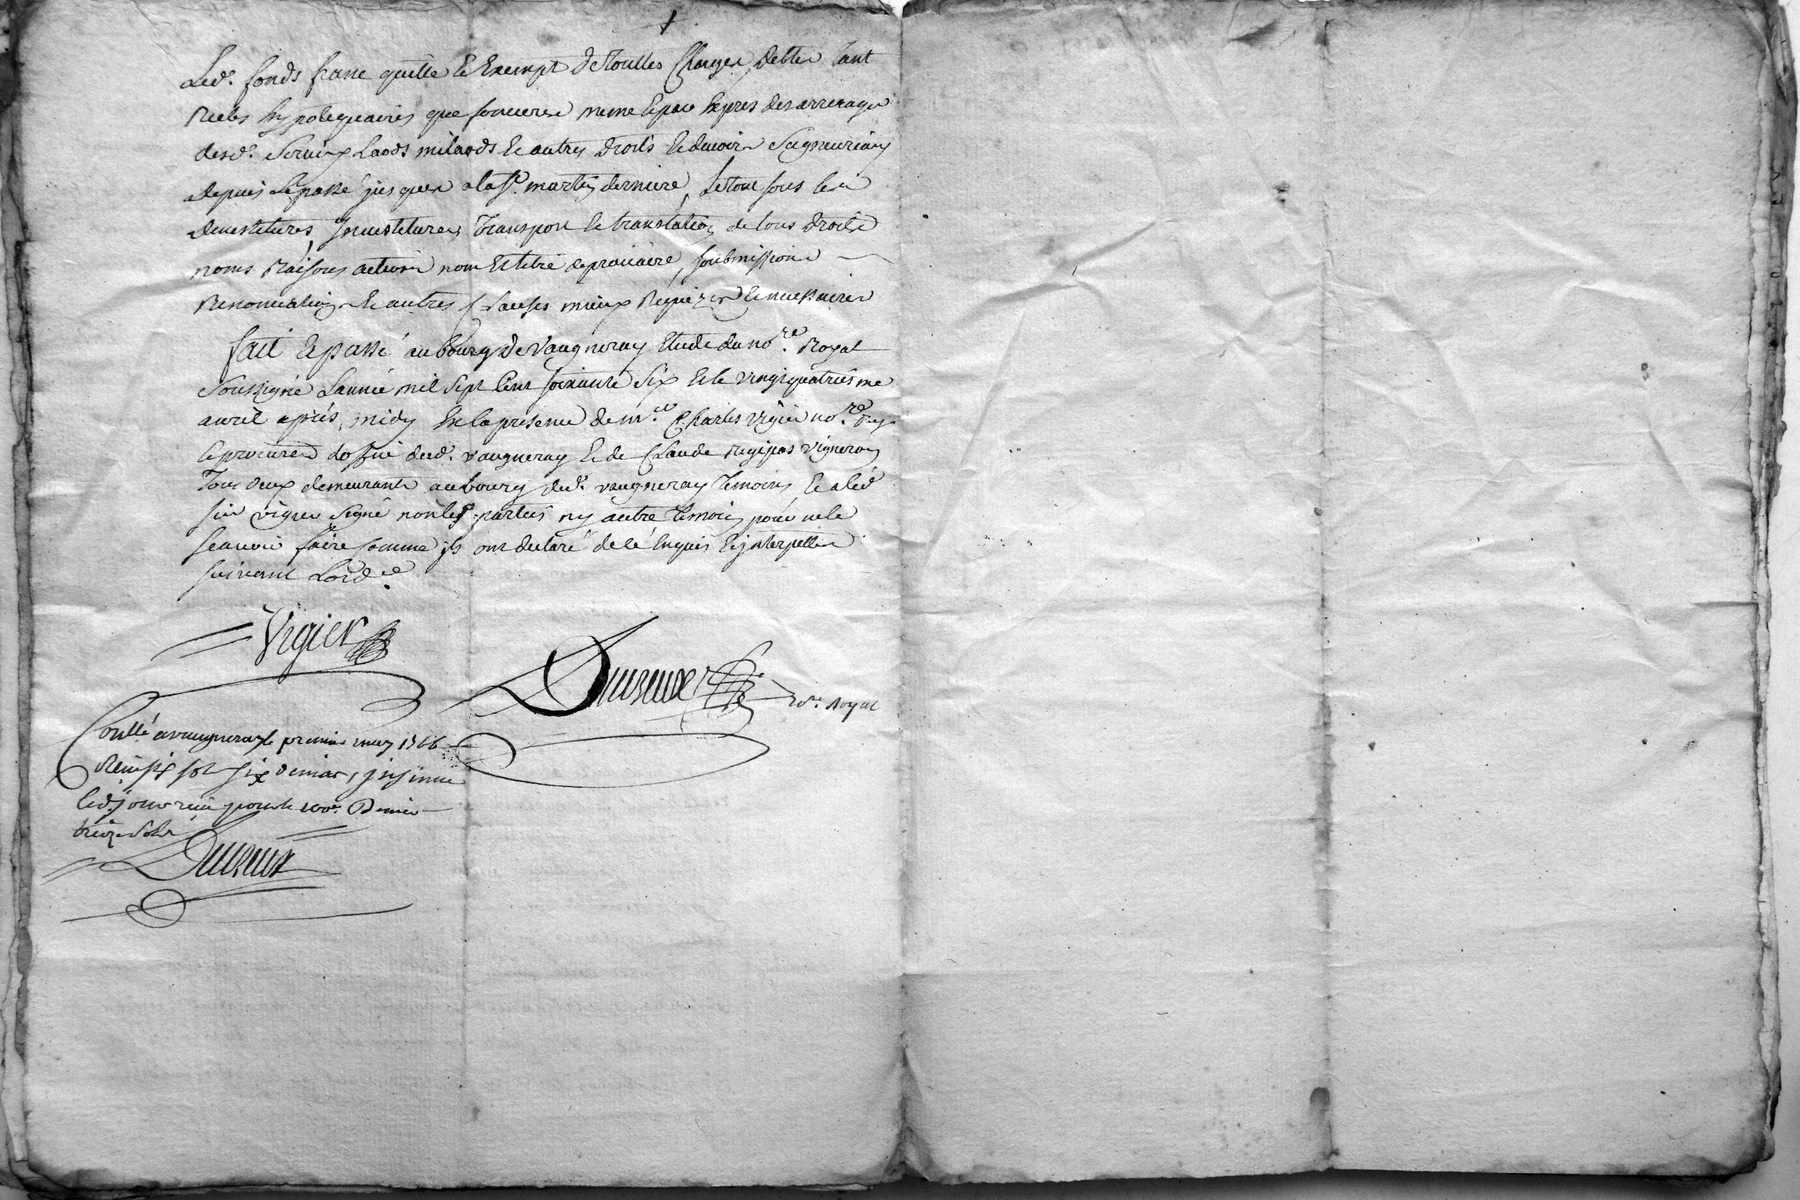 Led. fonds franc quitte et Exempt de toutes Charges debtes tant
Reeles hypotequaires que foncieres meme Expres des arrerages
desd. Servix Laods milaods et autres droits et devoirs Seigneuriaux
depuis Le passé jusques a la st. martin derniere, Le tout sous les
devestitures, Investitures, Transport et translation de tous droits
noms Raisons actions nom et titre de precaire, soubmissions
Renonciations et autres Clauses mieux Requizes et necessaires
fait et passé au bourg de Vaugneray Etude du no.re Royal
Soussigné L'année mil sept cent soixante six et le vingt quatrieme
avril après midy En la presence de m.e Charles Vigier no.re
et procureur dofice dud. vaugneray et de Claude vigneron
Tous deux demeurants au bourg dud. vaugneray temoins, Le led.
sieur vigier signé non les parties ny autre temoin pour ne le
scavoir faire comme ils ont declaré de ce Enquis et interpellés
suivant Lord.ce
Vigier
no.re Royal
Conllé a vaugneray le premier may 1766
Reçu six sols six deniers, insinué
led. jour reçu pour le 100.e Denier
treize sols